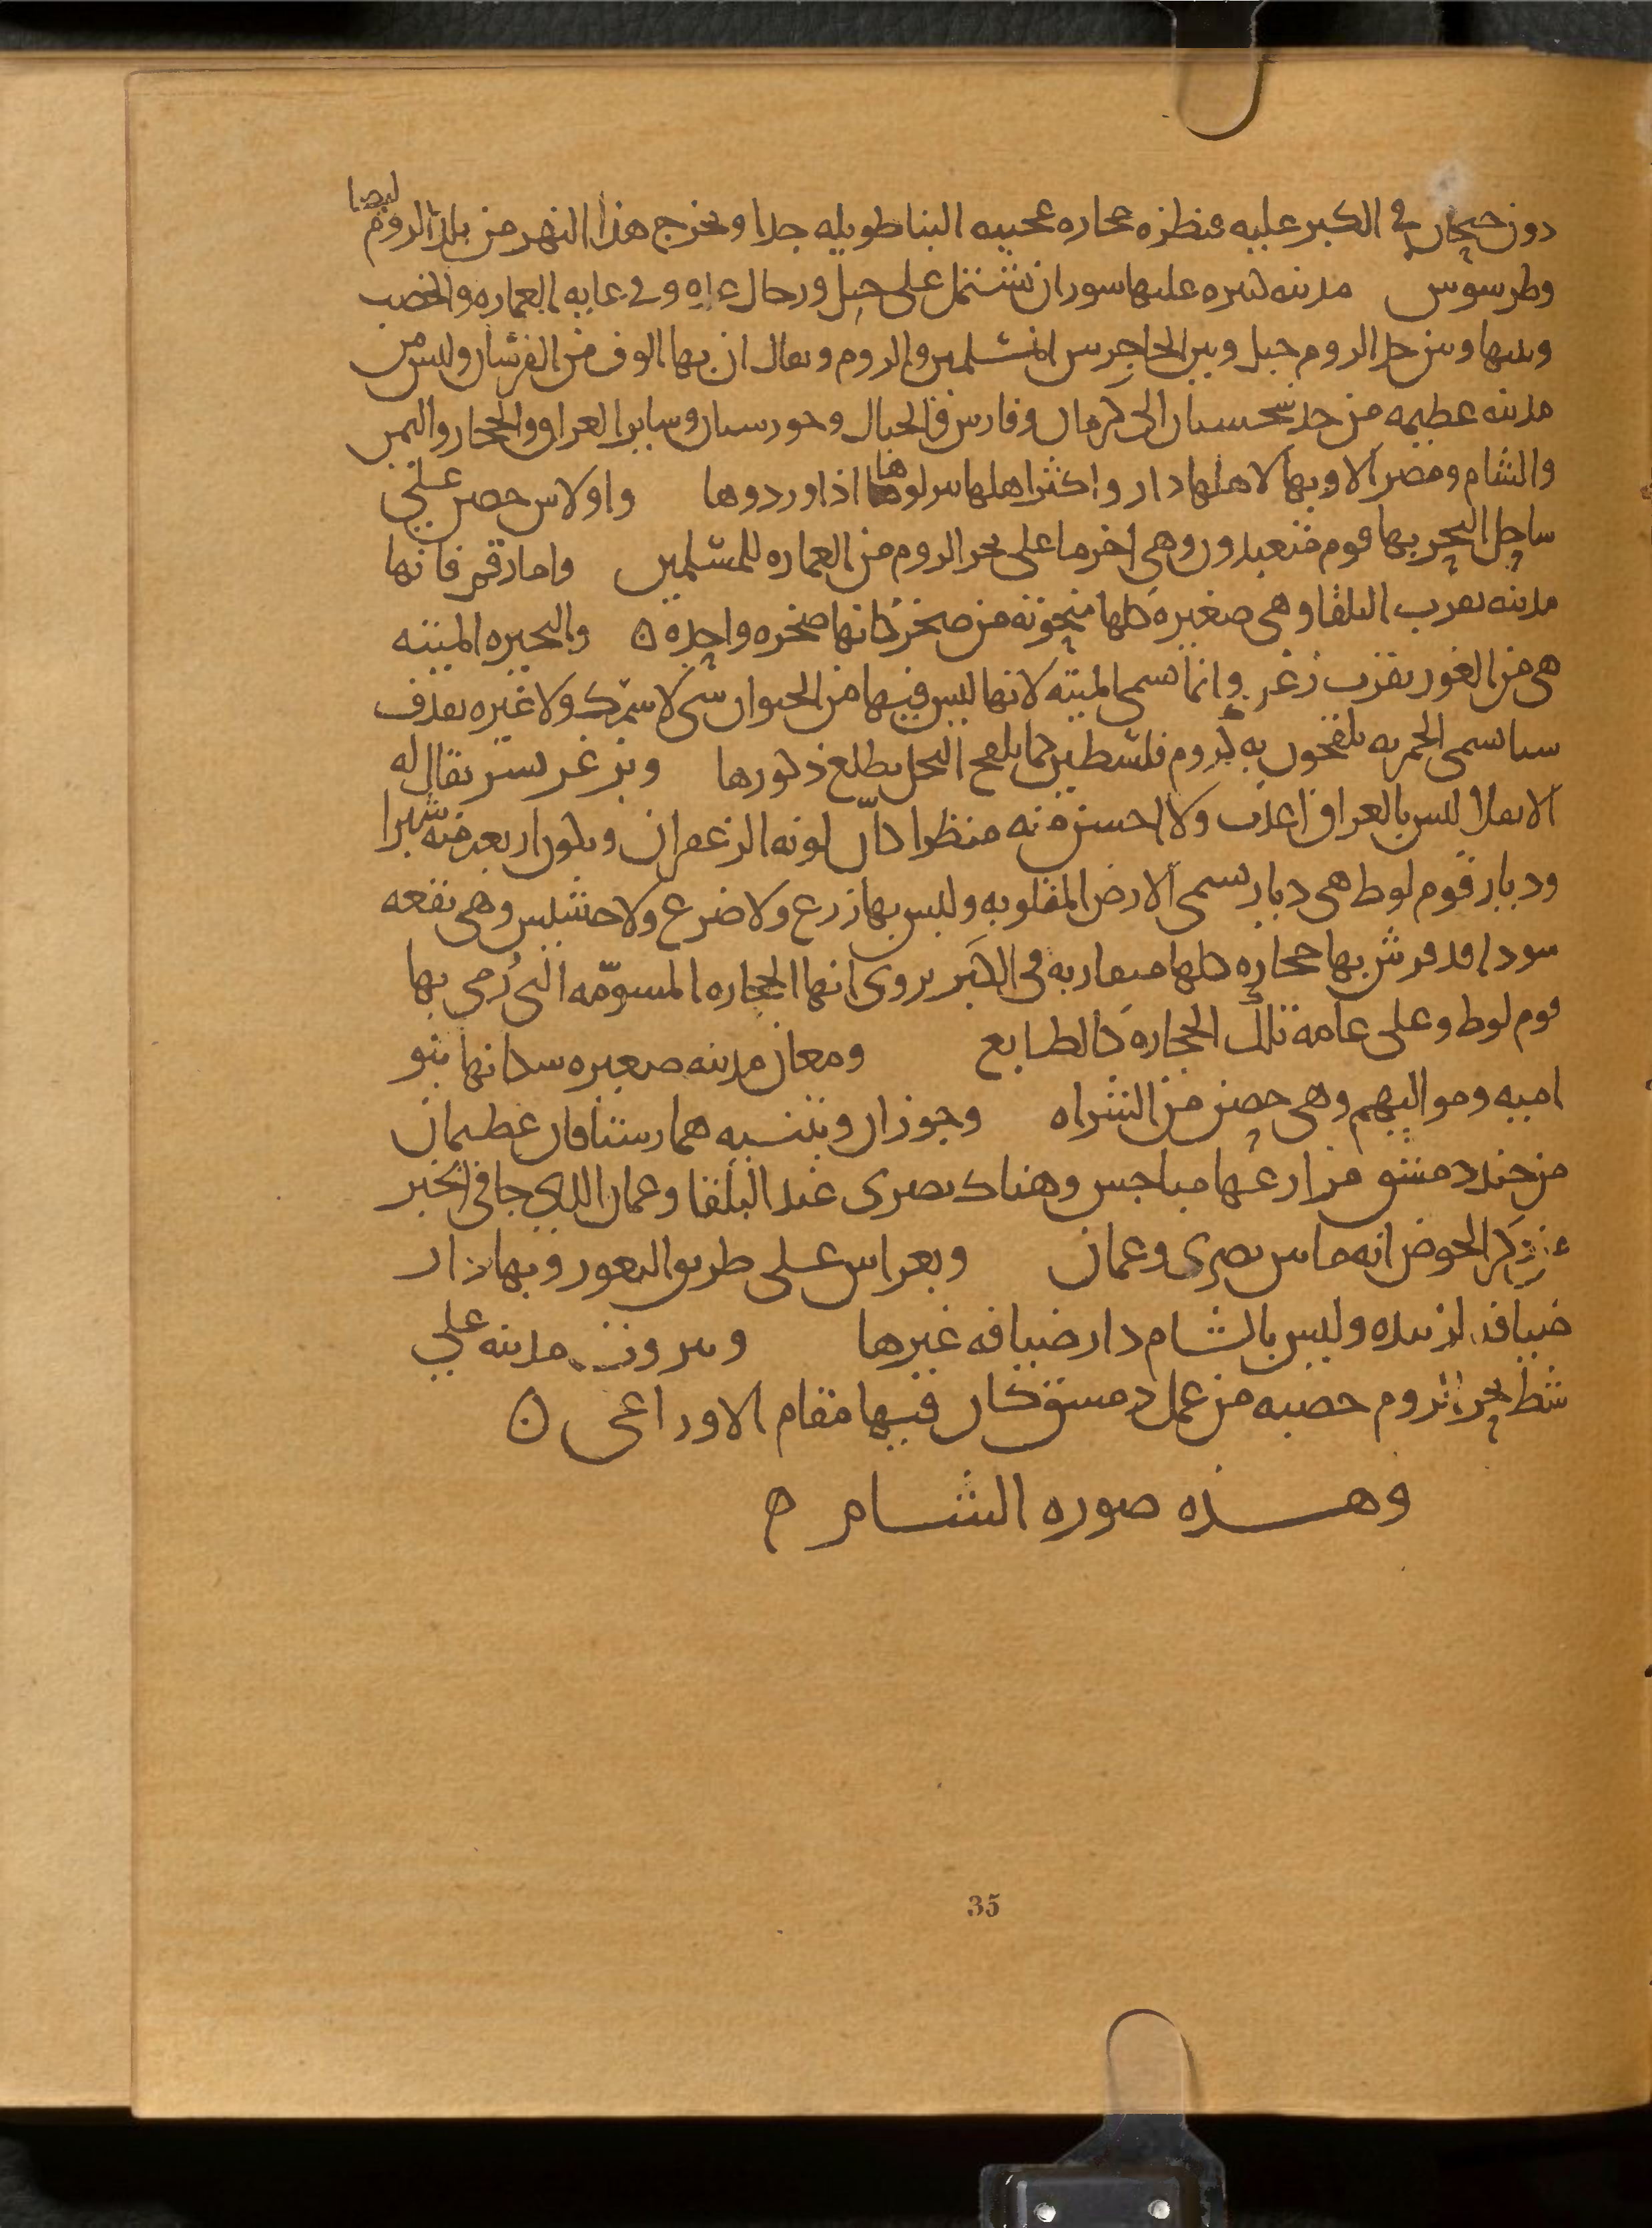 دون جيحان في الكبر عليه قنطرة حجاره عجيبه البنا طويله جدا ويخرج هذا النهر من بلد الروم ايضا
وطرسوس مدينه كبيره عليها سوران تشتمل على خيل ورجال وعده وفي غايه العماره والخصب
وبينها وبين حد الروم جبل وبين الحاجز بين المسلمين والروم ويقال ان بها الوف من الفرسان وليس من
مدينه عظيمه من حد سجستان الى كرمان وفارس والجبال وخورستان وساير العراق والحجاز واليمن
والشام ومصر الا وبها لاهلها دار واكثر اهلها ينزلونها اذا وردوها واولاس حصن على
ساحل البحر بها قوم متعبدون وهي اخر ما على بحر الروم من العماره للمسلمين واما رقم فانها
مدينه بقرب البلقا وهي صغيره كلها منحوته من صخر كانها صخره واحده ن والبحيره الميته
هي من الغور بقرب زغر وانما تسمى الميته لانها ليس فيها من الحيوان شي لا سمك ولا غيره يقذف
شيا يسمى الحمريه يلقحون به كروم فلسطين كما يلقح النخل بطلع ذكورها وبزغر بسر يقال له
الانقلا ليس بالعراق اعذب ولا احسن منه منظرا كان لونه الزعفران ويكون اربعه منه شبرا
وديار قوم لوط هي ديار تسمى الارض المقلوبه وليس بها زرع ولا ضرع ولا حشيش وهي بقعه
سودا قد فرش بها حجاره كلها متقاربه في الكبر يروى انها الحجاره المسومه التي رمي بها
قوم لوط وعلى عامه تلك الحجاره كالطابع ومعان مدينه صغيره سكانها بنو
اميه ومواليهم وهي حصن من الشراه وحوران وبثنيه هما رستاقان عظيمان
من جند دمشق مزارعها مباخس وهناك بصرى عند البلقا وعمان الذي جا في الخبر
عن ذكر الحوض انه ما بين بصرى وعمان وبغراس على طريق الثغور وبها دار
ضيافه لزبيده وليس بالشام دار ضيافه غيرها وبيروت مدينه على
شط بحر الروم خصبه من عمل دمشق كان فيها مقام الاوزاعي ن
وهذه صوره الشام م
35